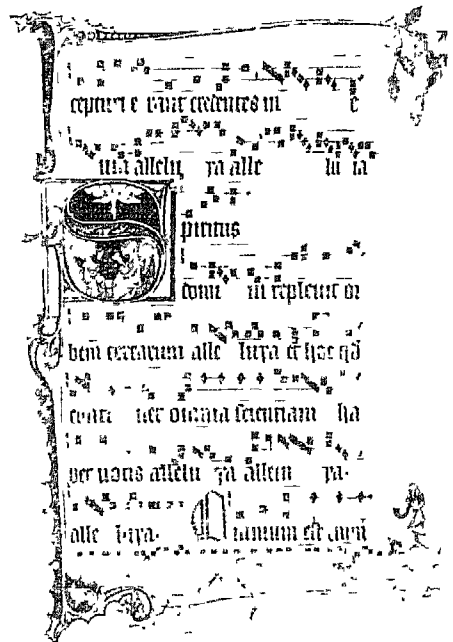 cepturi e rant credentes in e
um allelu ya alle lu ia
Spiritus
domi ni repleuit or
bem terrarum alle luya et hoc qd
conti net omnia scientiam ha
bet uocis allelu ya allelu ya.
alle luya.